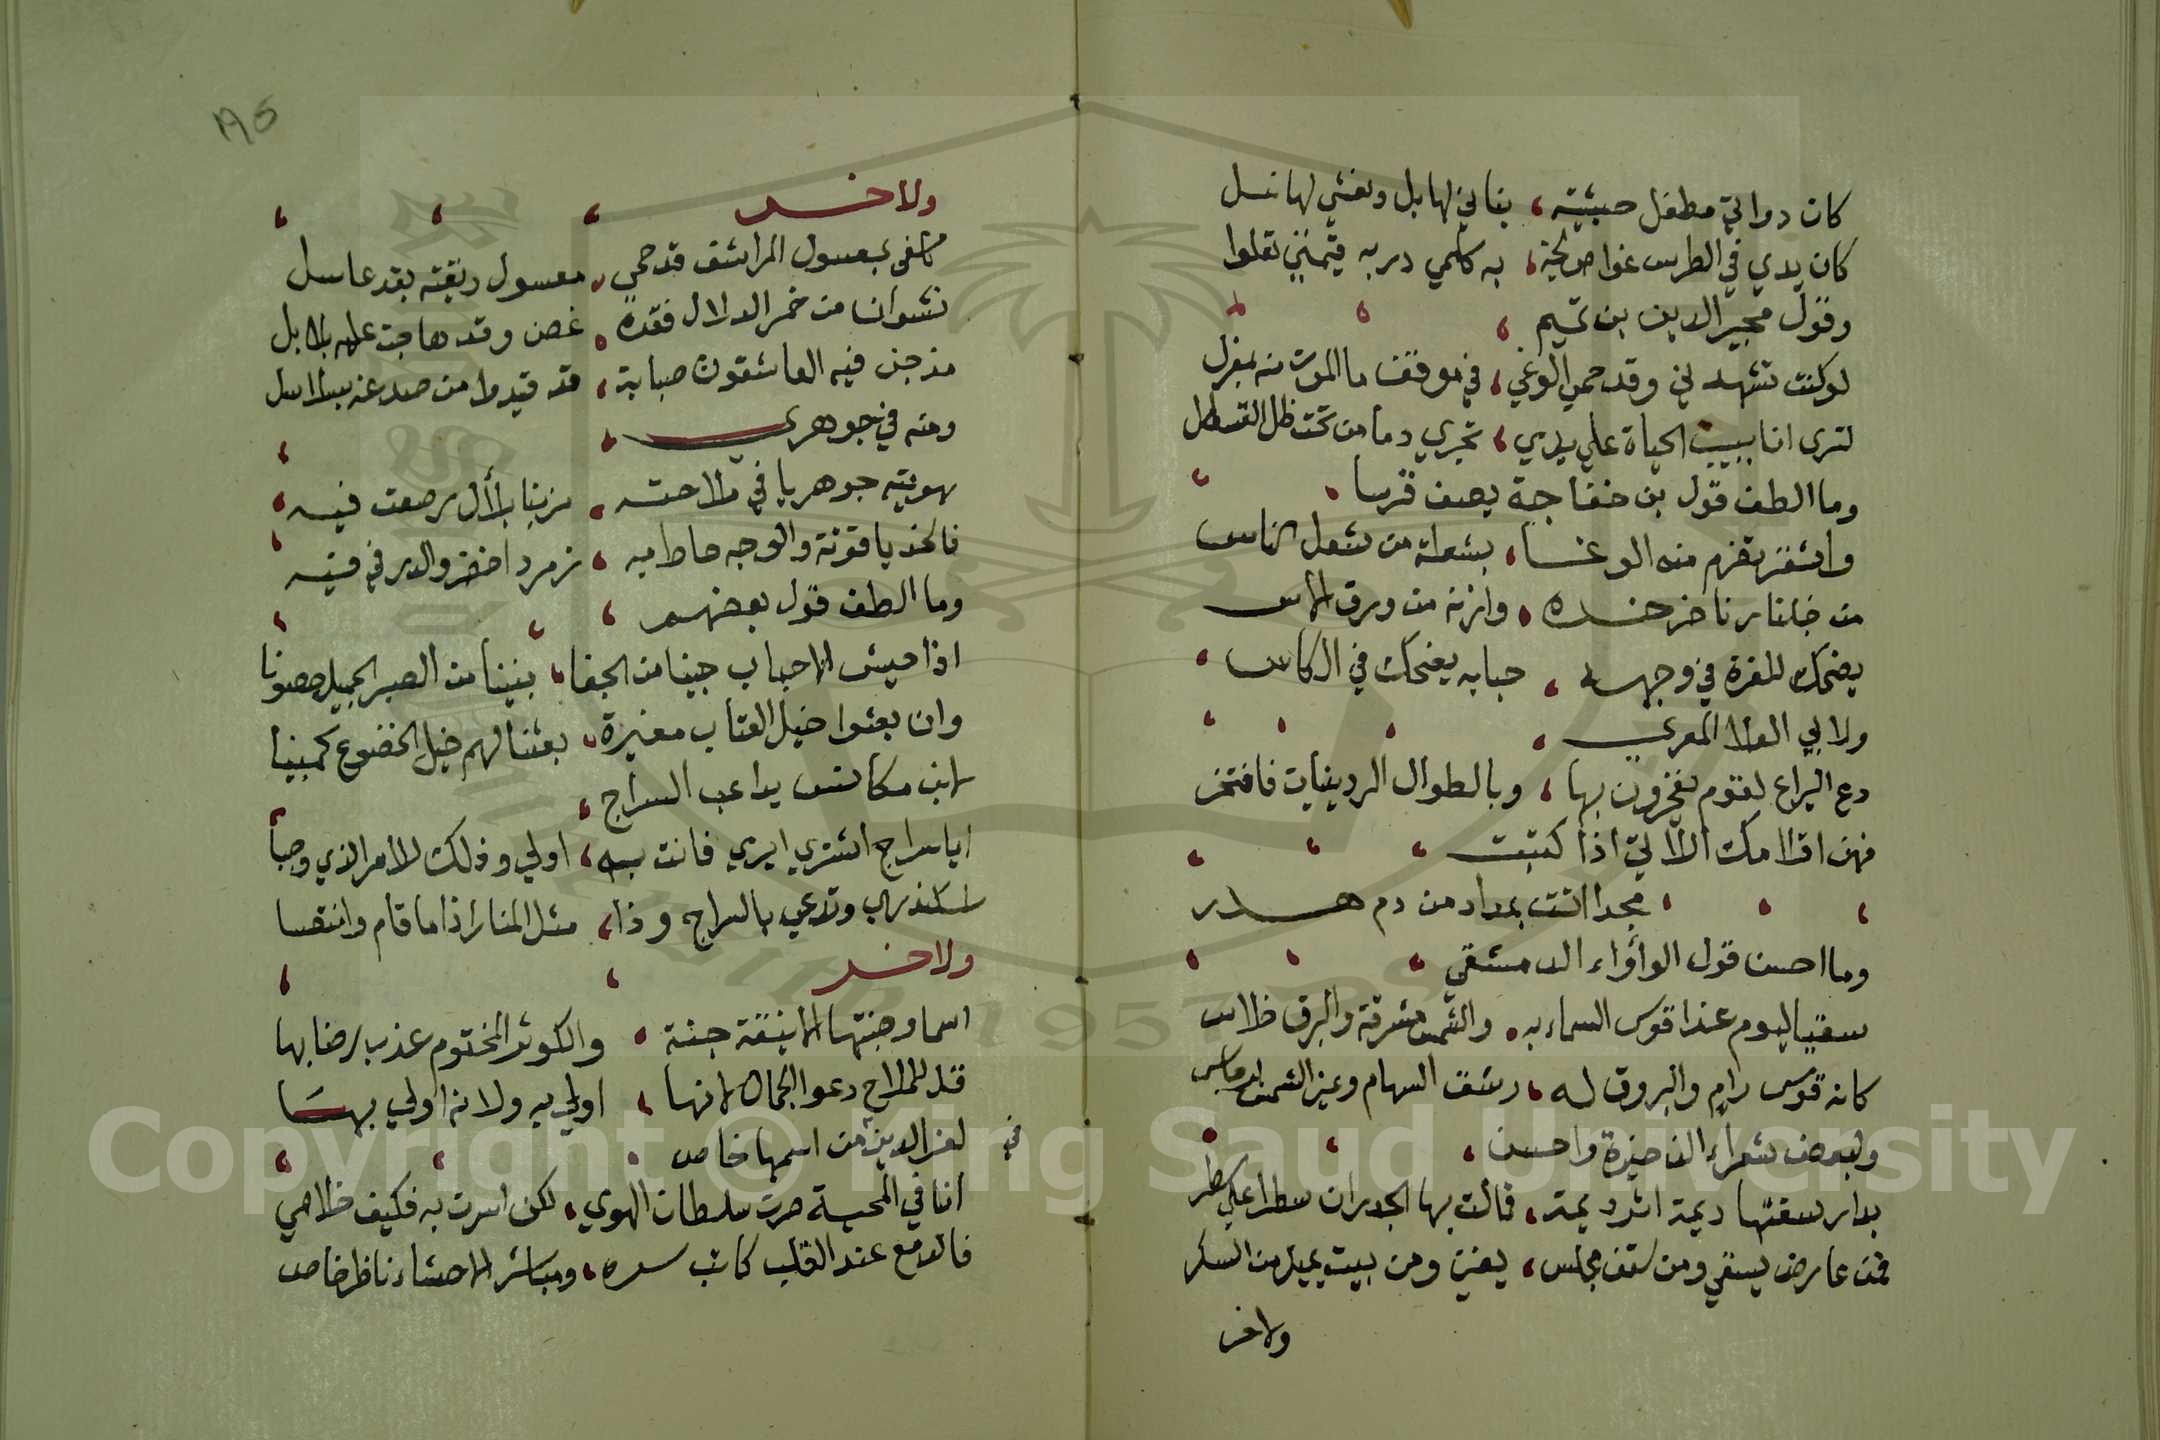 كان دواتي مطفل حبشية، بناني لها بل ونفسي لها نسل
كان يدي في الطرس غواص لجة، به كلمي در به قيمتي تغلوا
وقول مجير الدين بن تميم
لو كنت تشهدني وقد حمي الوغي، في موقف ما الموت منه بمعزل
لترى انابيب الحياة علي يدي، تجري دما من تحت ظل القسطل
وما الطف قول بن خفاجة يصف فرسا
واشقر تضرم منه الوغا، بشعلة من شعل الباس
من جلنار ناضر خده، واذنه من ورق الاس
يضحك للغرة في وجهه، حبابه يضحك في الكاس
ولابي العلا المعري
دع اليراع لقوم يفخرون بها، وبالطوال الردينيات فافتخر
فهن اقلامك اللاتي اذا كتبت
مجدا اتت بمداد من دم هدر
وما احسن قول الوأواء الدمشقي
سقيا ليوم غدا قوس السماء به، والشمس مشرقة والبرق خلاس
كانه قوس رام والبروق له، رشق السهام وعين الشمس برجاس
ولبعض شعراء الذخيرة واحسن
بدار سقتها ديمة اثر ديمة، فمالت بها الجدران سطرا علي سطر
فمن عارض يسقي ومن سقف مجلس، يغني ومن بيت يميل من السكر
ولاخر
١٩٥
ولاخر
كلفي بمعسول المراشف قد حمي، معسول ريقته بقد عاسل
نشوان من خمر الدلال فقده، غصن وقد هاجت عليه بلابل
مذ جن فيه العاشقون صبابة، قد قيدوا من صدغه بسلاسل
ومنه في جوهري
هويته جوهريا في ملاحته، مزينا بلأل رصعت فيه
فالخد ياقوتة والوجه حاط به، زمرد اخضر والدر في فيه
وما الطف قول بعضهم
اذا جيش الاحباب جيشا من الجفا، بنينا من الصبر الجميل حصونا
وان بعثوا خيل العتاب مغيرة، بعثنا لهم خيل الخضوع كمينا
لابن مكانس يداعب السراج
ايا سراج اشتري ايري فانت به، اولي وذلك للامر الذي وجبا
اسكندري وتدعي بالسراج وذا، مثل المنار اذا ما قام وانتصبا
ولاخر
اسما وجنتها الانيقة جنة، والكوثر المختوم عذب رضابها
قل للملاح دعوا الجمال لانها، اولي به ولانه اولي بها
لعز الدين من اسمها خاص
في
انا في المحبة صرت سلطان الهوي، لكن اسرت به فكيف خلاصي
فالدمع عند القلب كاتب سره، ومباشر الاحشاء ناظر خاص
Copyright © King Saud University
1957